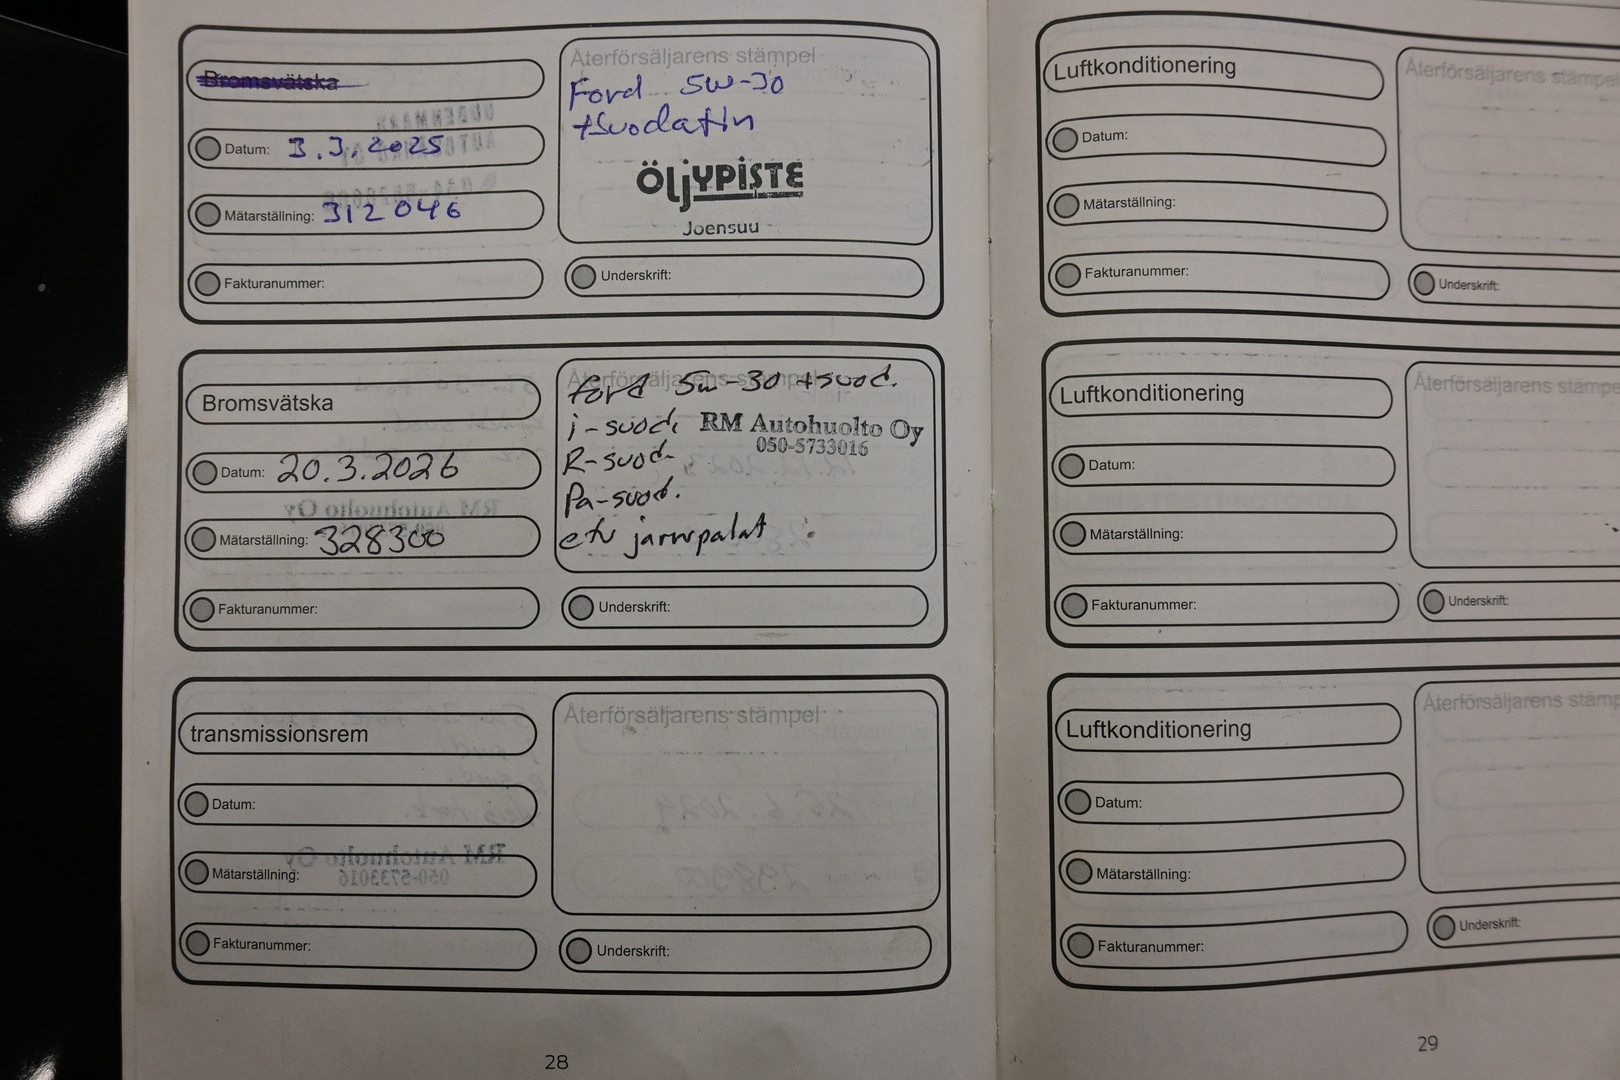 Bromsvätska
Datum: 3.3.2025
Mätarställning: 312046
Fakturanummer:
Återförsäljarens stämpel
Ford 5W-30
+suodatin
ÖLJYPISTE
Joensuu
Underskrift:
Bromsvätska
Datum: 20.3.2026
Mätarställning: 328300
Fakturanummer:
Återförsäljarens stämpel
Ford 5w-30 +suod.
i-suod.
RM Autohuolto Oy
050-5733016
R-suod.
Pa-suod.
etu jarrupalat
Underskrift:
transmissionsrem
Datum:
Mätarställning:
Fakturanummer:
Återförsäljarens stämpel
RM Autohuolto Oy
050-5733016
Underskrift:
28
Luftkonditionering
Datum:
Mätarställning:
Fakturanummer:
Återförsäljarens stämpel
Underskrift:
Luftkonditionering
Datum:
Mätarställning:
Fakturanummer:
Återförsäljarens stämpe
Underskrift:
Luftkonditionering
Datum:
Mätarställning:
Fakturanummer:
Återförsäljarens stämp
Underskrift:
29